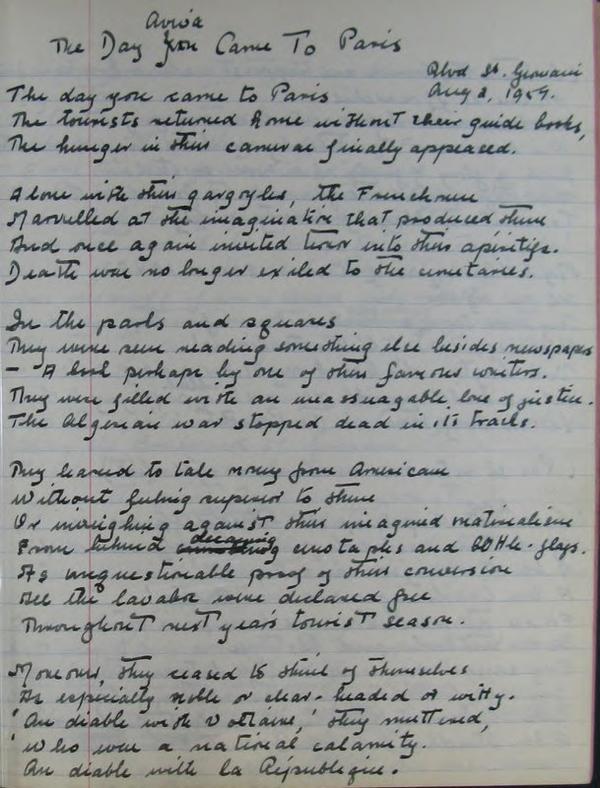 Aviva
The Day you Came To Paris
Blvd St. Germain
Aug 2, 1959.
The day you came to Paris
The tourists returned home without their guide books,
The hunger in their cameras finally appeased.
Alone with their gargoyles, the Frenchmen
Marvelled at the imagination that produced them
And once again invited terror into their apéritifs.
Death was no longer exiled to the cemetaries.
In the parks and squares
They were seen reading something else besides newspapers
- A book perhaps by one of their famous writers.
They were filled with an unassuagable love of justice.
The Algerian war was stopped dead in its tracks.
They learned to take money from Americans
Without feeling superior to them
Or inveighing against their imagined materialism
From behind decaying cenotaphs and battle-flags.
As unquestionable proof of their conversion
All the lavabos were declared free
Throughout next year's tourist season.
Moreover, they ceased to think of themselves
As especially noble or clear-headed or witty.
'Au diable with Voltaire,' they muttered,
'Who was a national calamity.
Au diable with la République.